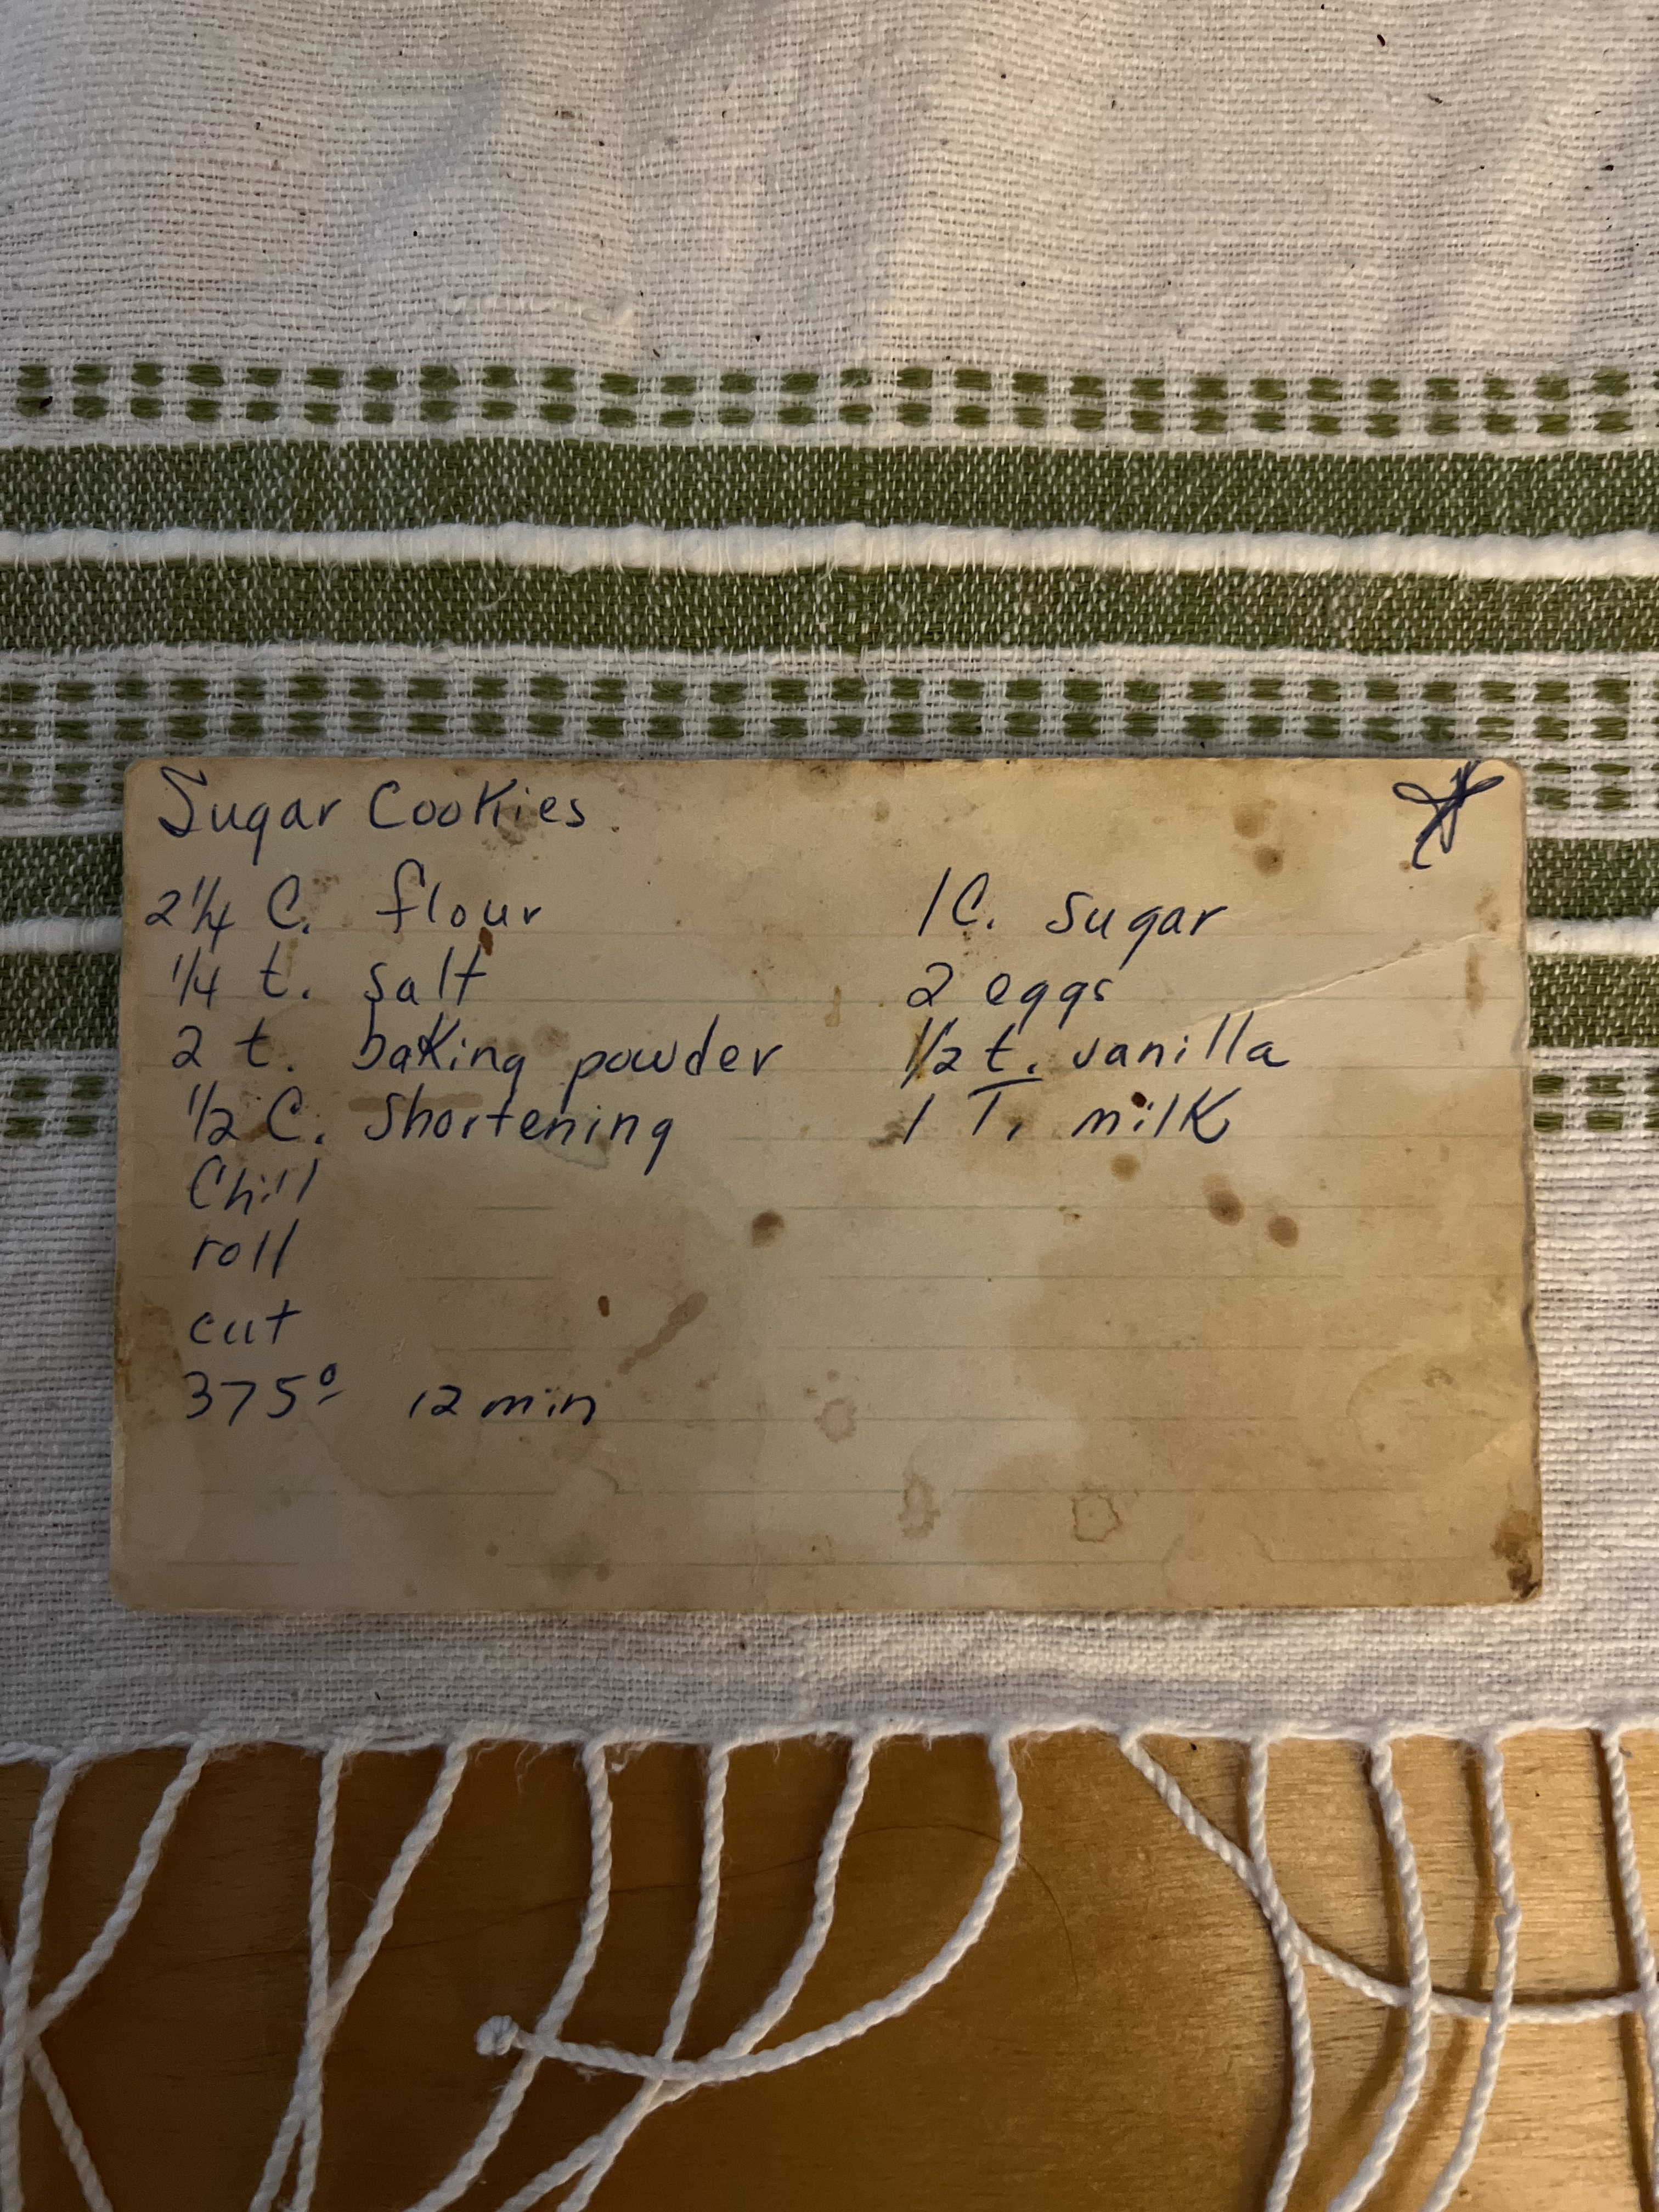 Sugar Cookies
2 1/4 C. flour 1 C. sugar
1/4 t. salt 2 eggs
2 t. baking powder 1/2 t. vanilla
1/2 C. shortening 1 T. milk
Chill
roll
cut
375° 12 min